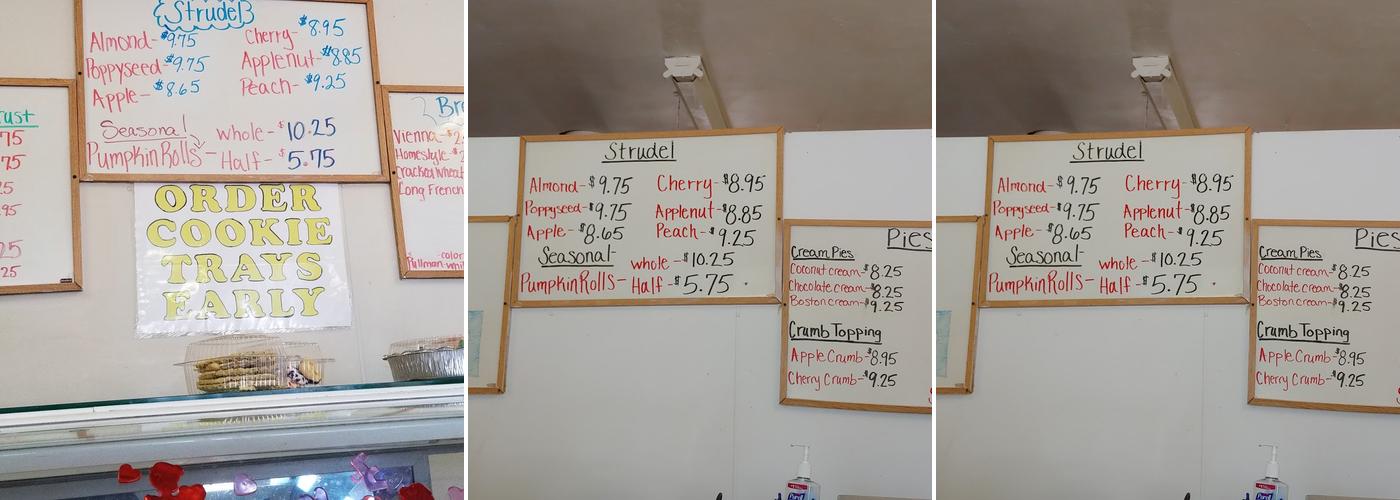 Strudel
Almond- $9.75 Cherry- $8.95
Poppyseed- $9.75 Applenut- $8.85
Apple- $8.65 Peach- $9.25
Seasonal
whole- $10.25
Pumpkin Rolls- Half- $5.75
ust
75
75
5
95
25
25
Br
Vienna-
Homestyle-
Cracked Wheat
Long French
color
Pullman-whi
ORDER
COOKIE
TRAYS
EARLY
Strudel
Almond-$9.75 Cherry-$8.95
Poppyseed-$9.75 Applenut-$8.85
Apple-$8.65 Peach-$9.25
Seasonal-
whole-$10.25
Pumpkin Rolls- Half-$5.75
Pies
Cream Pies
Coconut cream-$8.25
Chocolate cream-$8.25
Boston cream-$9.25
Crumb Topping
Apple Crumb-$8.95
Cherry Crumb-$9.25
Strudel
Almond-$9.75 Cherry-$8.95
Poppyseed-$9.75 Applenut-$8.85
Apple-$8.65 Peach-$9.25
Seasonal-
whole-$10.25
Pumpkin Rolls- Half-$5.75
Pies
Cream Pies
Coconut cream-$8.25
Chocolate cream-$8.25
Boston cream-$9.25
Crumb Topping
Apple Crumb-$8.95
Cherry Crumb-$9.25